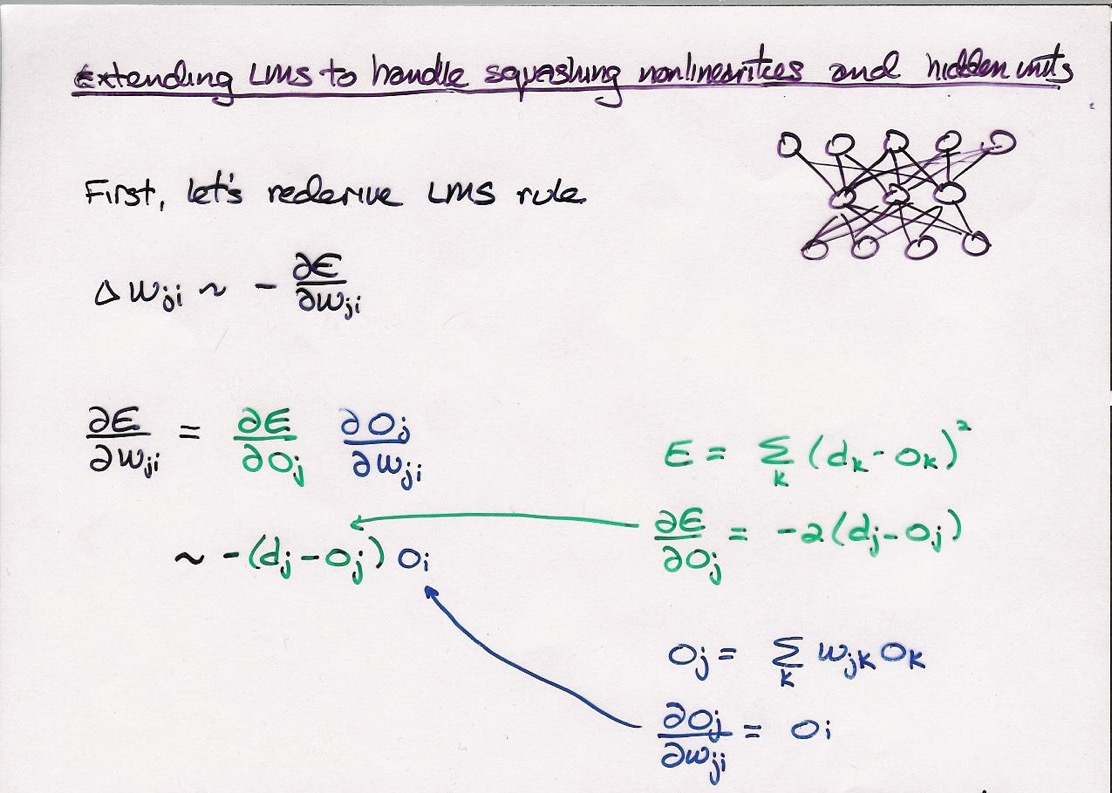 Extending LMS to handle squashing nonlinearities and hidden units
First, let's rederive LMS rule
Δw_ji ~ - ∂E/∂w_ji
∂E/∂w_ji = ∂E/∂o_j ∂o_j/∂w_ji
~ -(d_j - o_j) o_i
E = Σ_k (d_k - o_k)²
∂E/∂o_j = -2(d_j - o_j)
o_j = Σ_k w_jk o_k
∂o_j/∂w_ji = o_i